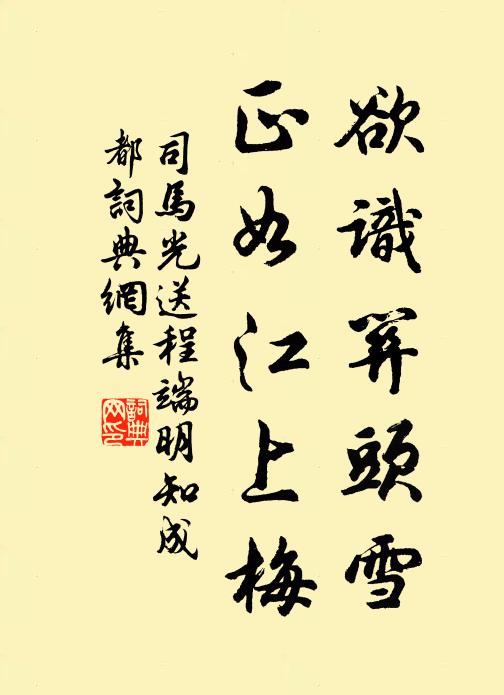 欲識笄頭雪
正如江上梅
司馬光送程端明知成
都詞典網集
詞典
网印